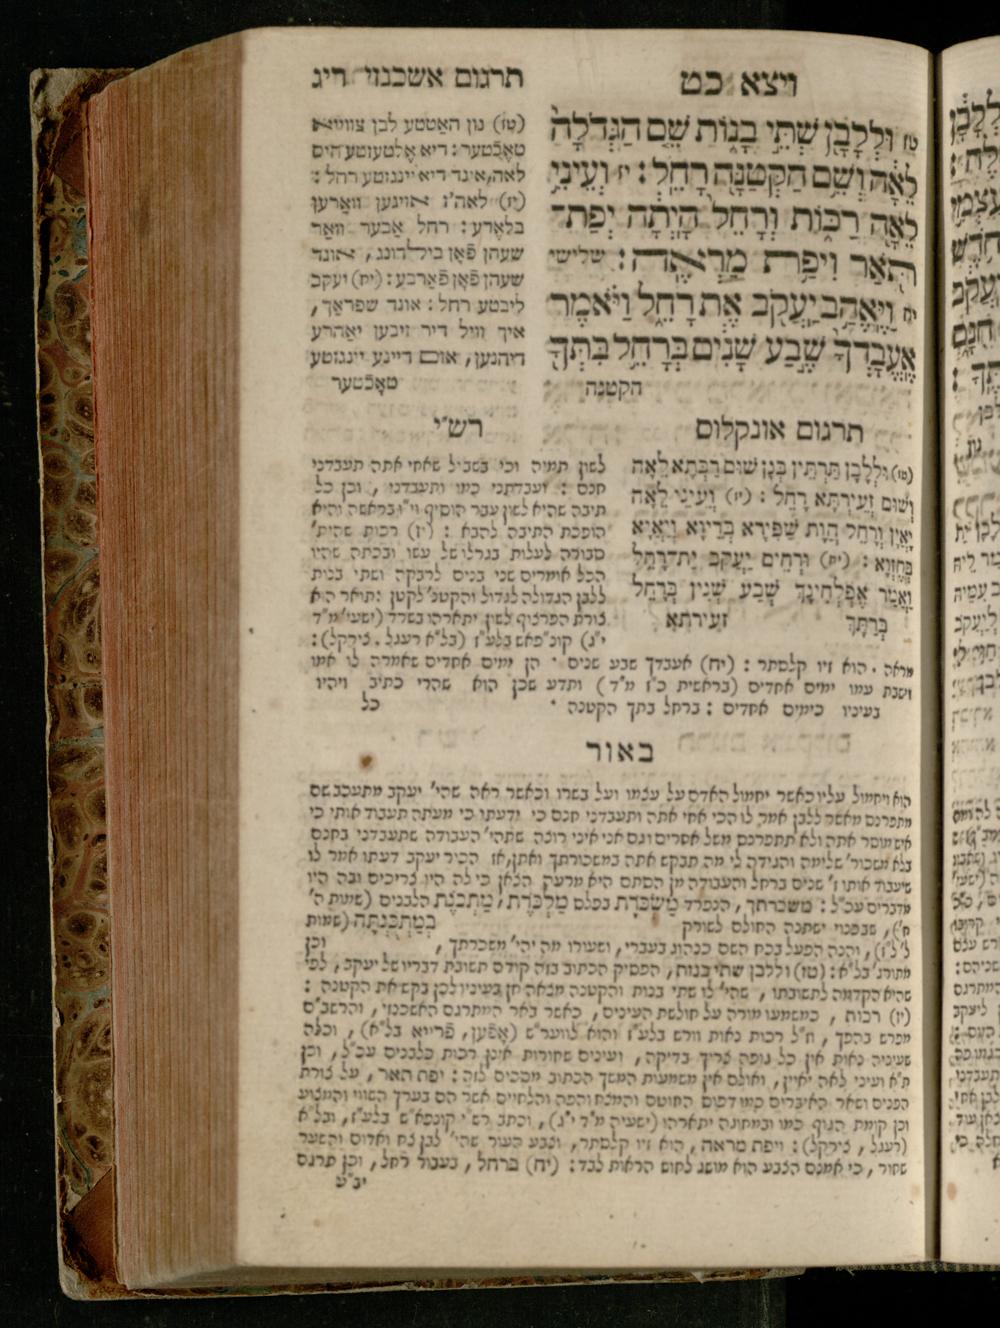 ויצא כט
תרגום אשכנזי ריג
טז וּלְלָבָן שְׁתֵּי בָנוֹת שֵׁם הַגְּדֹלָה
לֵאָה וְשֵׁם הַקְּטַנָּה רָחֵל׃ יז וְעֵינֵי
לֵאָה רַכּוֹת וְרָחֵל הָיְתָה יְפַת־
תֹּאַר וִיפַת מַרְאֶה׃ שלישי
יח וַיֶּאֱהַב יַעֲקֹב אֶת רָחֵל וַיֹּאמֶר
אֶעֱבָדְךָ שֶׁבַע שָׁנִים בְּרָחֵל בִּתְּךָ
הקטנה
(טז) נון האַטטע לבן צווייא
טאָכטער : דיא אֶלטעזטע היס
לאה, אונד דיא יינגזטע רחל :
(יז) לאה'ז אויגען וואַרען
בלאֶדע : רחל אַבער וואַר
שעהן פֿאָן בילדונג, אונד
שעהן פֿאָן פֿאַרבע : (יח) יעקב
ליבטע רחל : אונד שפּראַך,
איך וויל דיר זיבען יאַהרע
דיהנען, אום דיינע יינגזטע
טאָכטער
תרגום אונקלוס
(טז) וּלְלָבָן תַּרְתֵּין בְּנָן שׁוּם רַבְּתָא לֵאָה
וְשׁוּם זְעֵירְתָּא רָחֵל : (יז) וְעֵינֵי לֵאָה
יָאֲיָן וְרָחֵל הֲוַת שַׁפִּירָא בְּרֵיוָא וְיָאֲיָא
בְּחֶזְוָא : (יח) וּרְחֵים יַעֲקֹב יָת רָחֵל
וַאֲמַר אֶפְלְחִינָךְ שְׁבַע שְׁנִין בְּרָחֵל
בְּרַתָּךְ זעירתא
רש״י
לשון תמיה וכי בשביל שאחי אתה תעבדני
חנם : ועבדתני כמו ותעבדני , וכן כל
תיבה שהיא לשון עבר הוסיף וי״ו בראשה והיא
הופכת התיבה להבא : (יז) רכות שהית'
סבורה לעלות בגורלו של עשו ובכתה שהיו
הכל אומרים שני בנים לרבקה ושתי בנות
ללבן הגדולה לגדול והקטנ' לקטן : תואר הוא
צורת הפרצוף לשון יתארהו בשרד (ישעי' מ״ד
י״ג) קונ״פאש בלע״ז (בל״א רעגל . צירקל) :
מראה . הוא זיו קלסתר : (יח) אעבדך שבע שנים . הן ימים אחדים שאמרה לו אמו
וישבת עמו ימים אחדים (בראשית כ״ז מ״ד) ותדע שכן הוא שהרי כתיב ויהיו
בעיניו כימים אחדים : ברחל בתך הקטנה . כל
באור
הוא ויחמול עליו כאשר יחמול האדם על עצמו ועל בשרו וכאשר ראה שהי' יעקב מתעכב שם
מתפרנס מאשר ללבן אמר לו הכי אחי אתה ותעבדני חנם כי ידעתי כי מעתה תעבוד אותי כי
איש מוסר אתה ולא תתפרנס משל אחרים וגם אני איני רוצה שתהי' העבודה שתעבדני בחנם
בלא משכור' שלימה והגידה לי מה תבקש אתה במשכורתך ואתן, אז הכיר יעקב דעתו אמר לו
שיעבוד אותו ז' שנים ברחל והעבודה מן הסתם היא מרעה הצאן כי לה היו צריכים ובה היו
מדברים עכ״ל : משכרתך , הנפרד מַשְׂכֹּרֶת בפלס מַלְכֹּדֶת, מַתְכֹּנֶת הלבנים (שמות ה'
ח'), שבכנוי ישתנה החולם לשורק בְּמַתְכֻּנְתָּהּ (שמות
ל' ל״ז), והנה הפעל בכח השם כנהוג בעברי, ושעורו מה יהי' משכרתך , וכן
מתורג' בל״א : (טז) וללבן שתי בנות, הפסיק הכתוב בזה קודם תשובת דבריו של יעקב, לפי
שהיא הקדמה לתשובתו , שהי' לו שתי בנות והקטנה מצאה חן בעיניו לכן בקש את הקטנה :
(יז) רכות , כמשמעו מורה על חולשת העינים, כאשר באר המתרגם האשכנזי, והרשב״ם
מפרש בהפך , וז״ל רכות נאות וורש בלע״ז והוא לווער״ש (אָפֿען, פֿרייא בל״א) , וכלה
שעיניה נאות אין כל גופה צריך בדיקה, ועינים שחורות אינן רכות כלבנים עכ״ל, וכן
ת״א ועיני לאה יאיין, ואולם אין משמעות המשך הכתוב מסכים לזה : יפת תאר, על צורת
הפנים ושאר האיברים כמו דפוס החוטם והמצח והפה והלחיים אשר הם בערך השווי והמצוע
וכן קומת הגוף כמו ובמחוגה יתארהו (ישעיה מ״ד י״ג), וכתב רש״י קונפא״ש בלע״ז, ובל״א
(רעגל, צירקל) : ויפת מראה, הוא זיו קלסתר, וצבע העור שהי' לבן צח ואדום והשער
שחור, כי אמנם הצבע הוא מושג לחוש הראות לבד : (יח) ברחל, בעבור רחל, וכן תרגם